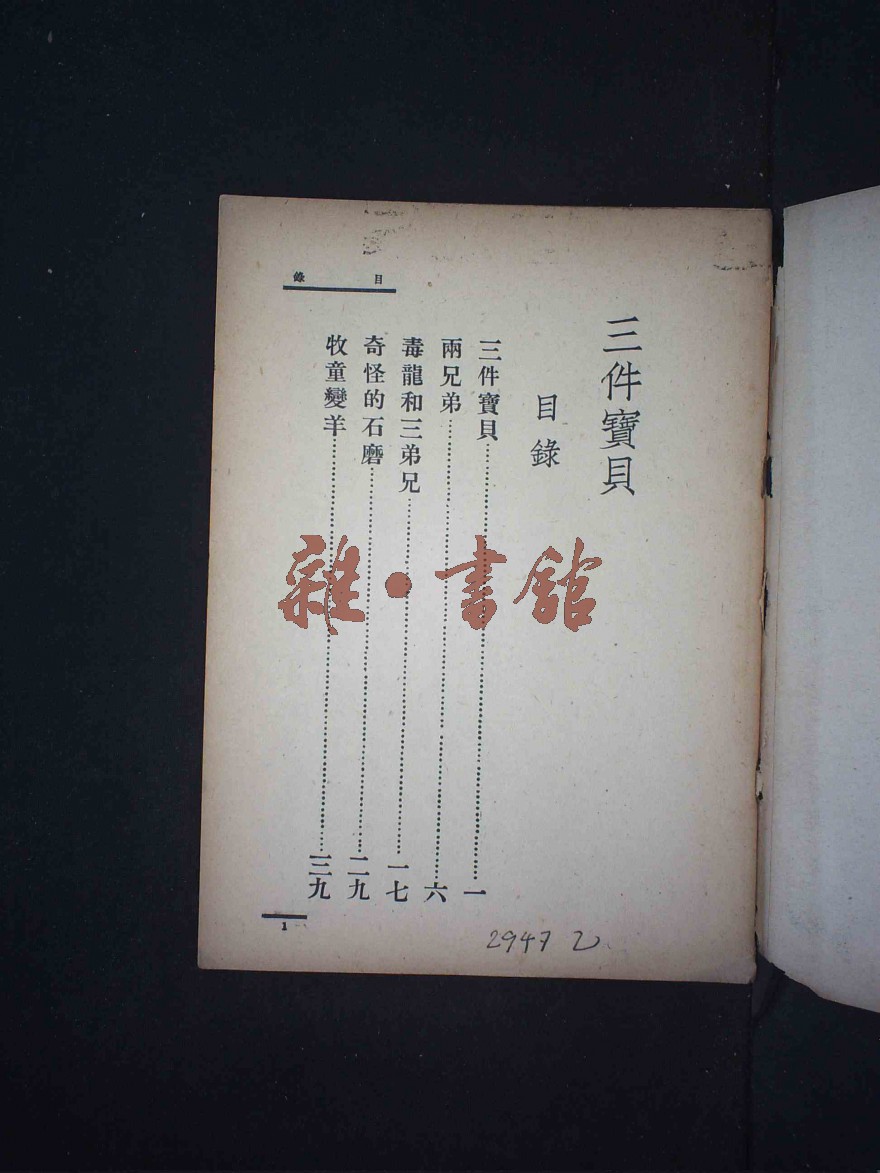 目錄
三件寶貝
目錄
三件寶貝……一
兩兄弟……六
毒龍和三弟兄……一七
奇怪的石磨……二九
牧童變羊……三九
1
雜·書館